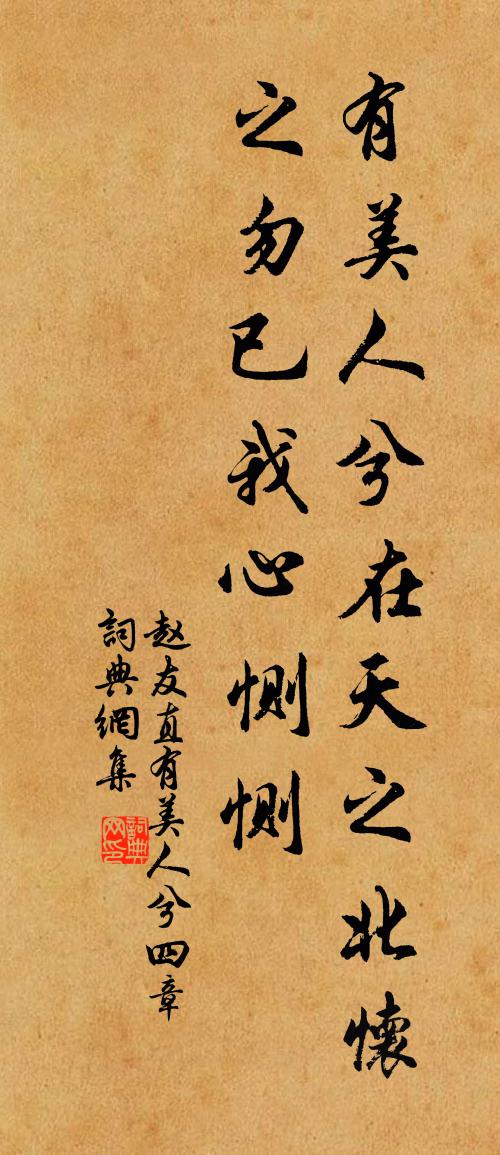 有美人兮在天之北懷
之勿已我心惻惻
赵友直有美人兮四章
詞典網集
詞典網印